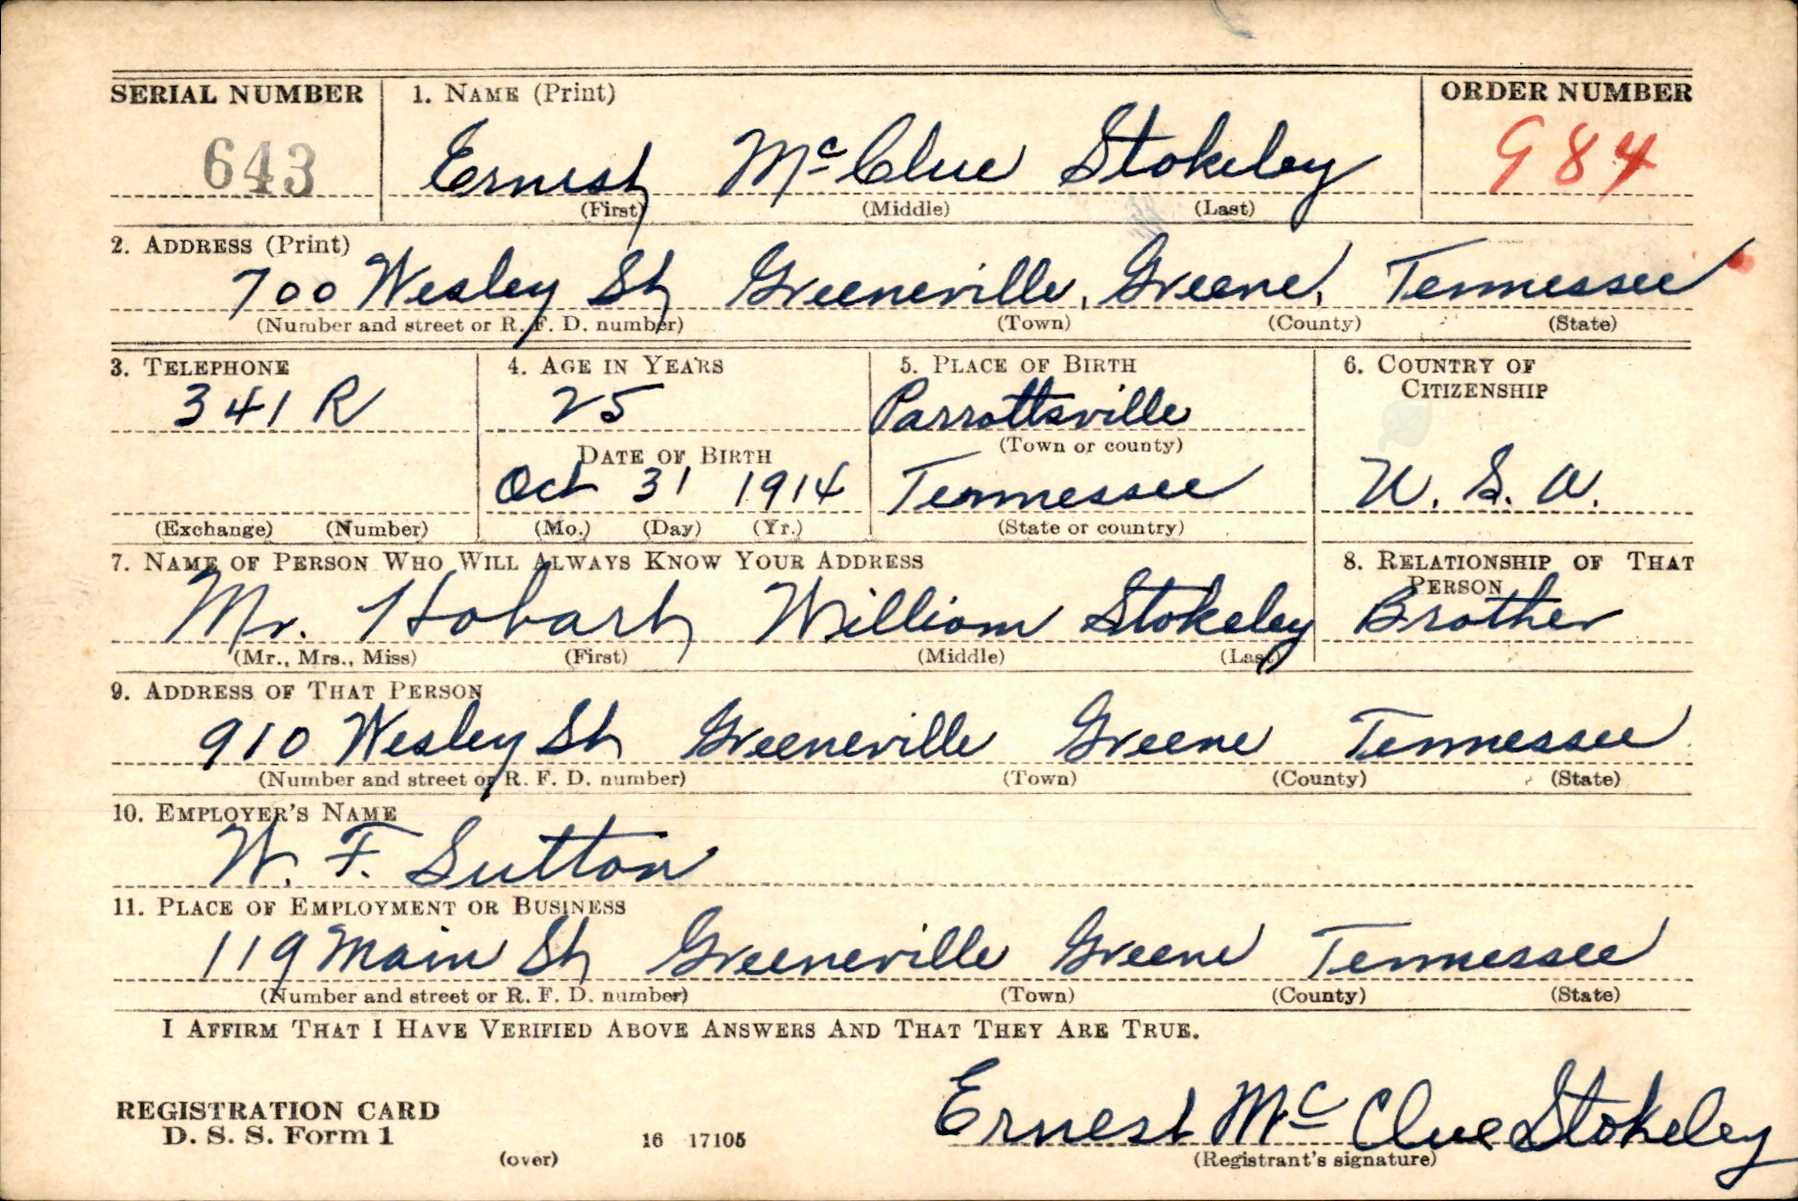 SERIAL NUMBER 1. NAME (Print) ORDER NUMBER
643 Ernest McClue Stokeley 984
(First) (Middle) (Last)
2. ADDRESS (Print)
700 Wesley St Greeneville, Greene, Tennessee
(Number and street or R. F. D. number) (Town) (County) (State)
3. TELEPHONE 4. AGE IN YEARS 5. PLACE OF BIRTH 6. COUNTRY OF
CITIZENSHIP
341 R 25 Parrottsville
(Town or county)
DATE OF BIRTH
Oct 31 1914 Tennessee U. S. A.
(Exchange) (Number) (Mo.) (Day) (Yr.) (State or country)
7. NAME OF PERSON WHO WILL ALWAYS KNOW YOUR ADDRESS 8. RELATIONSHIP OF THAT
PERSON
Mr. Hobart William Stokeley Brother
(Mr., Mrs., Miss) (First) (Middle) (Last)
9. ADDRESS OF THAT PERSON
910 Wesley St Greeneville Greene Tennessee
(Number and street or R. F. D. number) (Town) (County) (State)
10. EMPLOYER'S NAME
W. F. Sutton
11. PLACE OF EMPLOYMENT OR BUSINESS
119 Main St Greeneville Greene Tennessee
(Number and street or R. F. D. number) (Town) (County) (State)
I AFFIRM THAT I HAVE VERIFIED ABOVE ANSWERS AND THAT THEY ARE TRUE.
REGISTRATION CARD
D. S. S. Form 1 16 17105 Ernest McClue Stokeley
(over) (Registrant's signature)